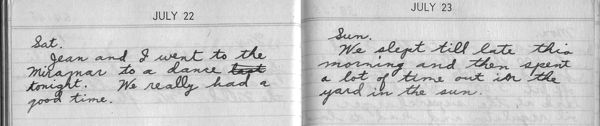 JULY 22
Sat.
Jean and I went to the
Miramar to a dance last
tonight. We really had a
good time.
JULY 23
Sun.
We slept till late this
morning and then spent
a lot of time out in the
yard in the sun.